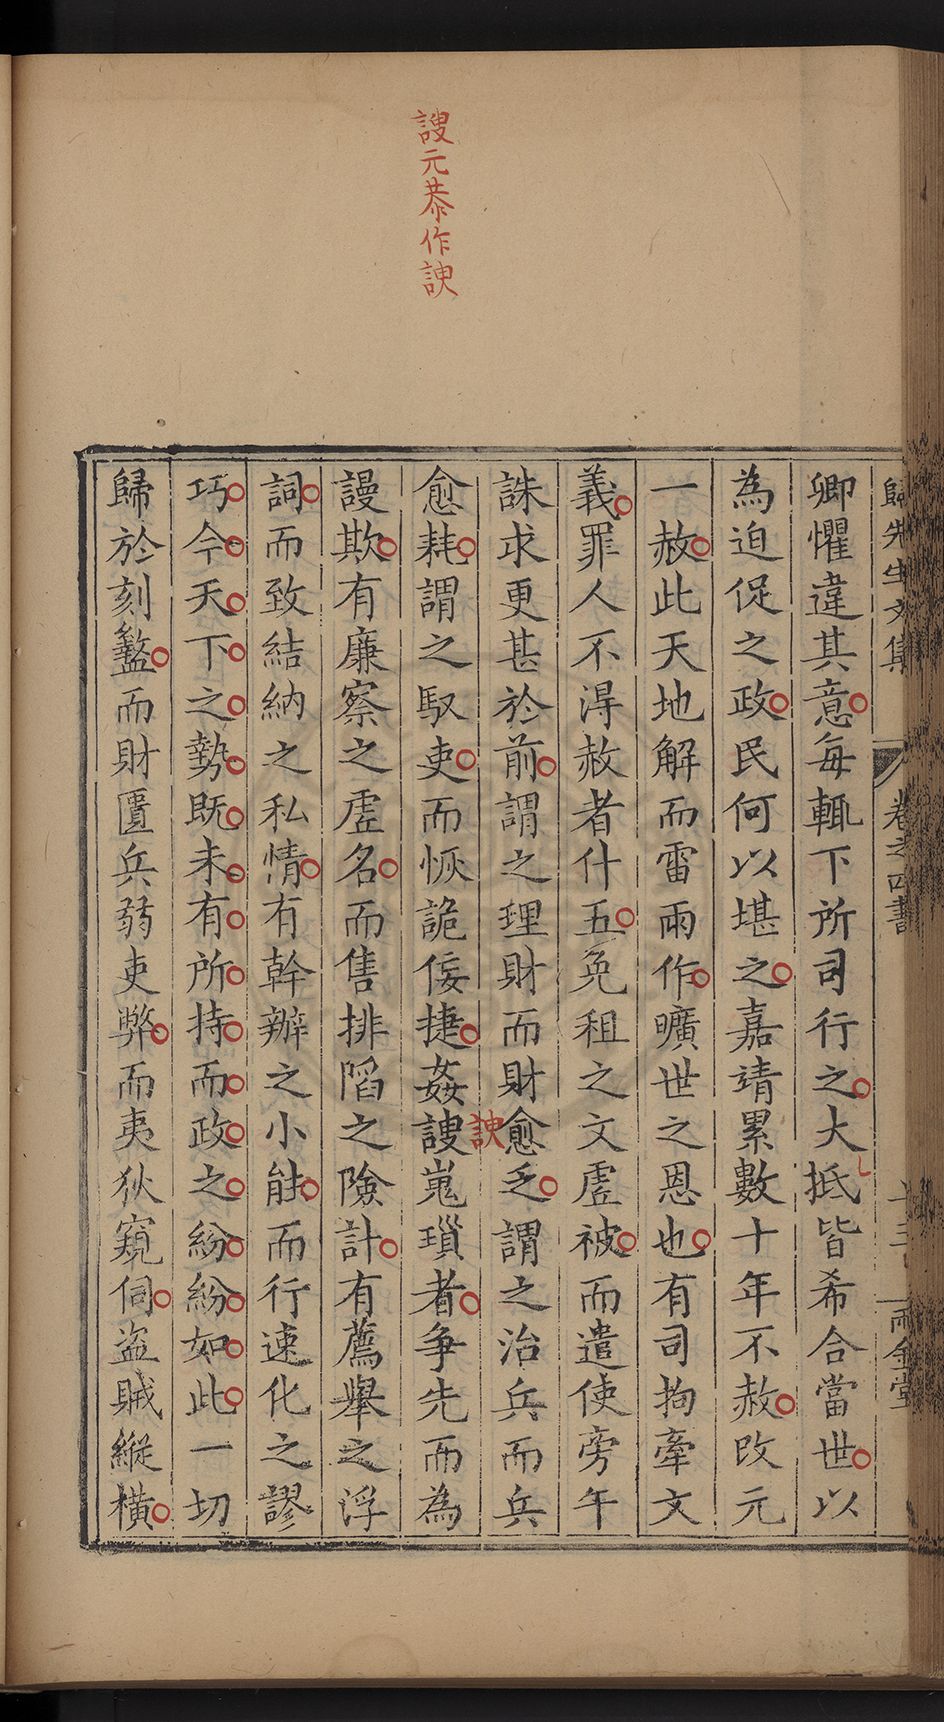 謏元恭作諛
歸先生文集
卷之四書
卿懼違其意每輒下所司行之大抵皆希合當世以
為迫促之政民何以堪之嘉靖累數十年不赦改元
一赦此天地解而雷雨作曠世之恩也有司拘牽文
義罪人不得赦者什五免租之文虛被而遣使旁午
誅求更甚於前謂之理財而財愈乏謂之治兵而兵
愈耗謂之馭吏而恢詭佞捷姦謏嵬瑣者爭先而為
諛
謾欺有廉察之虛名而售排䧟之險計有薦舉之浮
詞而致結納之私情有幹辦之小能而行速化之謬
巧今天下之勢既未有所持而政之紛紛如此一切
歸於刻盭而財匱兵弱吏弊而夷狄窺伺盜賊縱橫